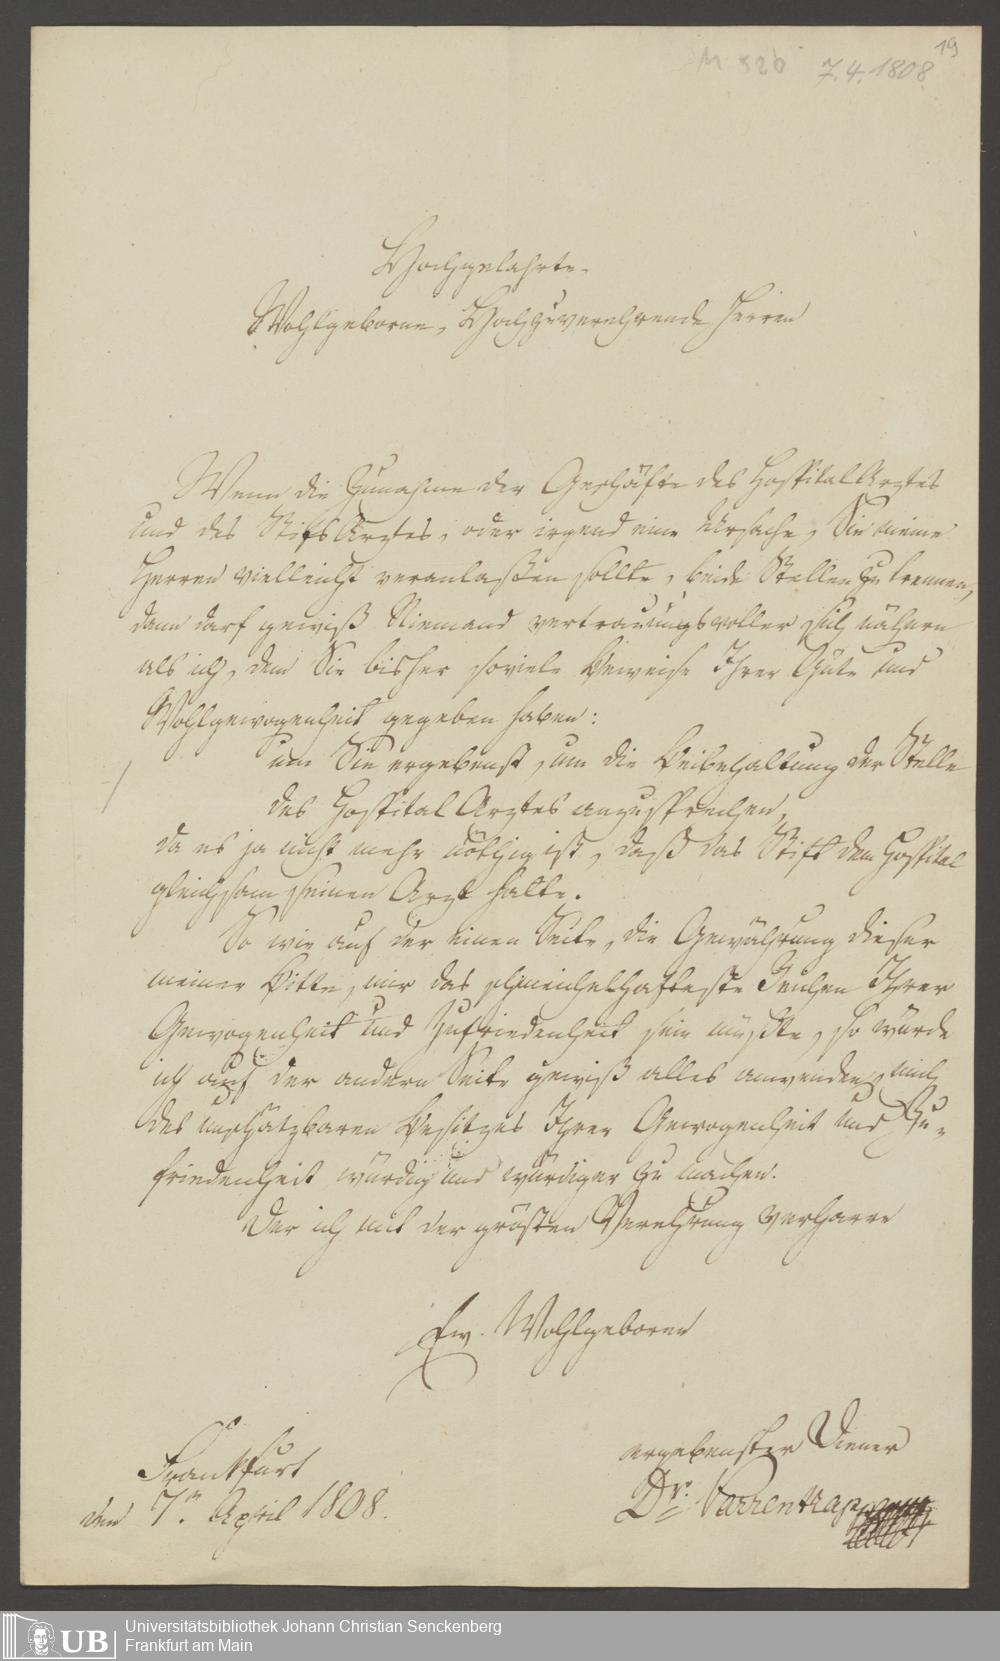 19
M 326 7.4.1808
Hochgelahrte
Wohlgeborne, Hochzuverehrende Herren
Wenn die Zunahme der Geschäfte des Hospital Arztes
und des Stifts Arztes, oder irgend eine Ursache, Sie meine
Herren vielleicht veranlaßen sollte, beide Stellen zu trennen,
dann darf gewiß Niemand vertrauungsvoller sich nähern
als ich, dem Sie bisher soviele Beweise Ihrer Güte und
Wohlgewogenheit gegeben haben:
um Sie ergebenst, um die Beibehaltung der Stelle
des Hospital Arztes anzusprechen,
da es ja nicht mehr nöthig ist, daß das Stift dem Hospital
gleichsam seinen Arzt halte.
So wie auf der einen Seite, die Gewährung dieser
meiner Bitte, mir das schmeichelhafteste Zeichen Ihrer
Gewogenheit und Zufriedenheit sein müßte, so würde
ich auf der andern Seite gewiß alles anwenden, mich
des unschätzbaren Besitzes Ihrer Gewogenheit und Zu-
friedenheit würdig und würdiger zu machen.
Der ich mit der grösten Verehrung verharre
Ew. Wohlgeboren
ergebenster Diener
Frankfurt
Dr. Varrentrapp
den 7n. April 1808.
UB
Universitätsbibliothek Johann Christian Senckenberg
Frankfurt am Main